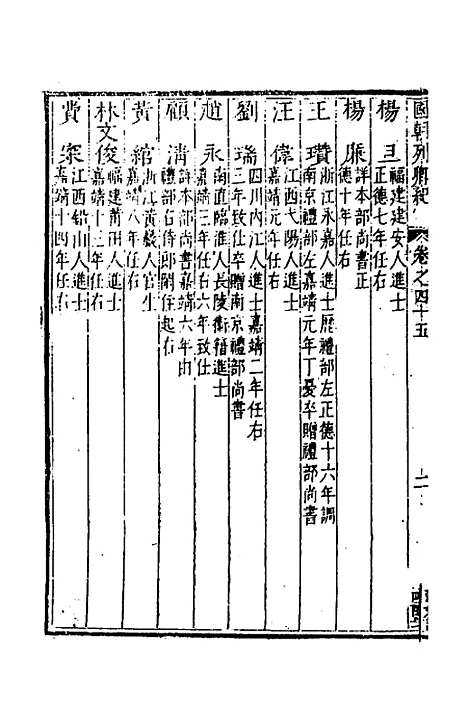 國朝列卿紀 卷之四十五 二
楊旦 福建建安人進士
正德七年任右
楊廉 詳本部尚書正
德十年任右
王瓚 浙江永嘉人進士歷禮部左正德十六年調
南京禮部左嘉靖元年丁憂卒贈禮部尚書
汪偉 江西弋陽人進士
嘉靖元年任右
劉瑞 四川內江人進士嘉靖二年任右
三年致仕卒贈南京禮部尚書
趙永 南直臨淮人長陵衛籍進士
嘉靖三年任右六年致仕
顧清 詳本部尚書嘉靖六年由
禮部右侍郎閑住起右
黃綰 浙江黃巖人官生
嘉靖八年任右
林文俊 福建莆田人進士
嘉靖十三年任右
費寀 江西鉛山人進士
嘉靖十四年任右